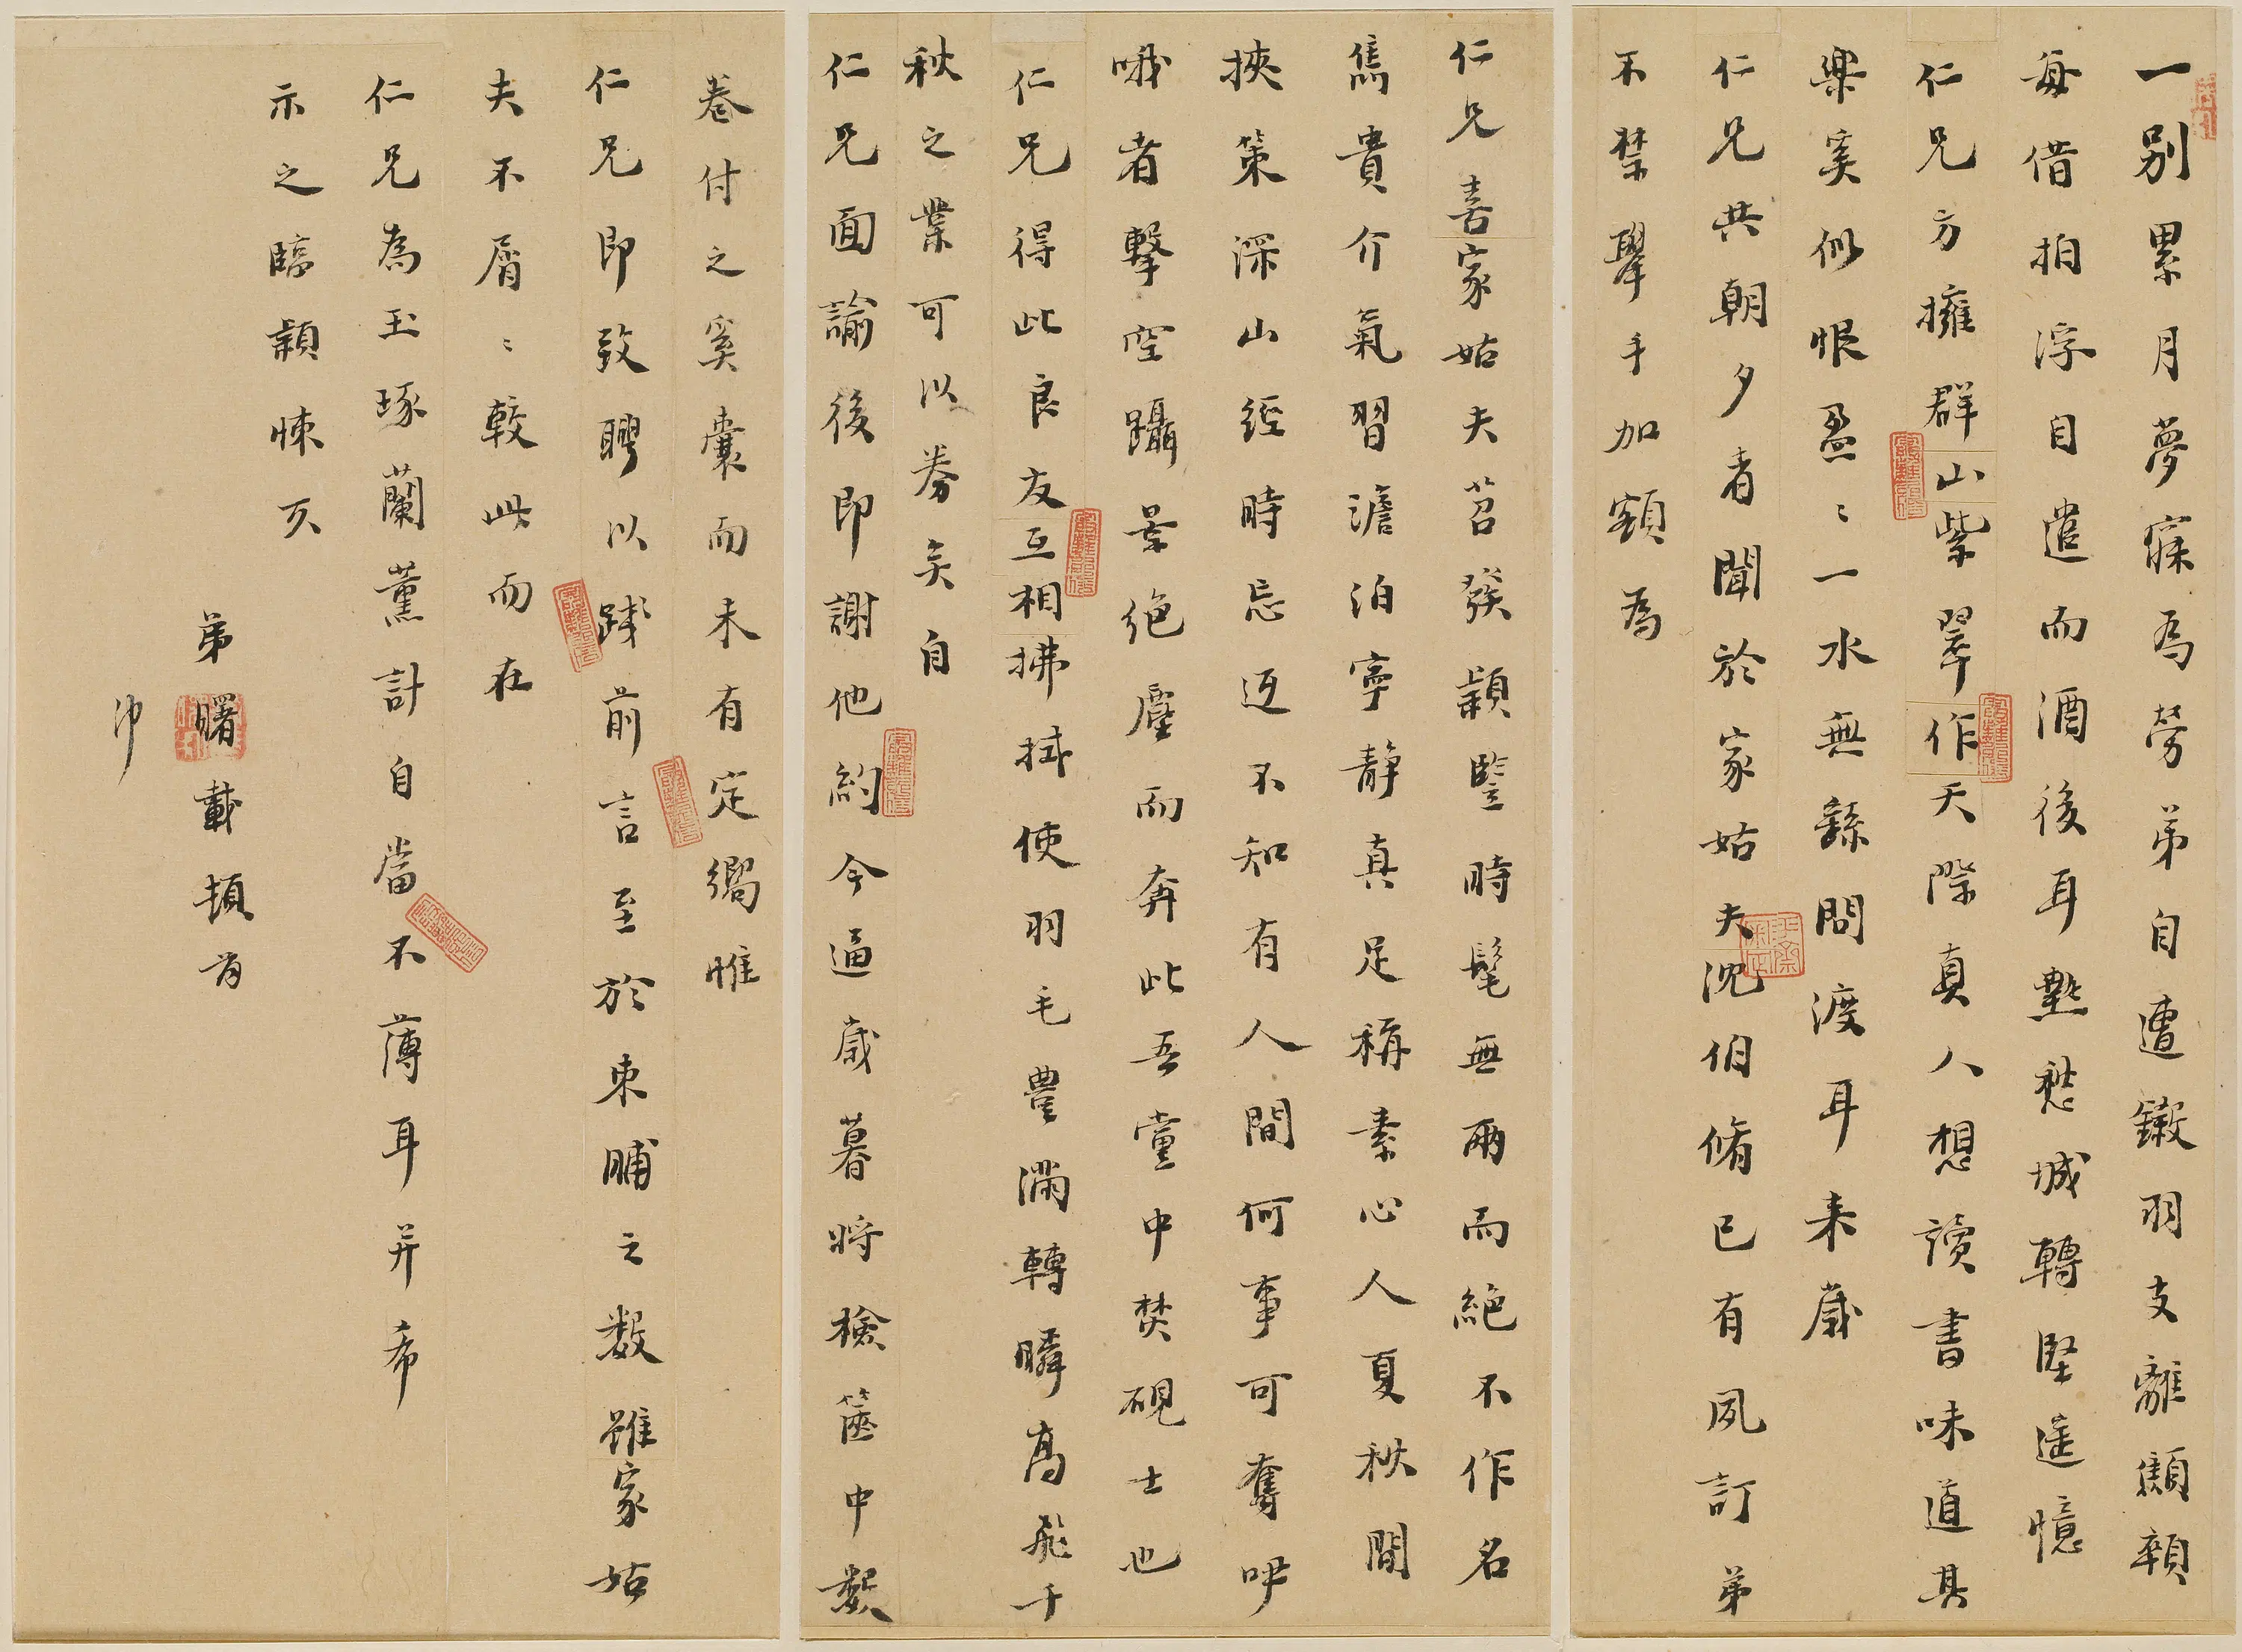 一別累月夢寐為勞弟自遭鎩羽支離顦顇
每借拍浮自遣而酒後耳熱愁城轉堅遙憶
仁兄方擁群山紫翠作天際真人想讀書味道其
樂奚似恨盈〻一水無繇問渡耳来歲
仁兄共朝夕者聞於家姑夫沈伯脩已有夙訂弟
不禁舉手加額為
仁兄喜家姑夫苕發穎豎時髦無兩而絕不作名
雋貴介氣習澹泊寧靜真足稱素心人夏秋間
挾策深山經時忘返不知有人間何事可奪咿
哦者擊空躡景絕塵而奔此吾黨中焚硯士也
仁兄得此良友互相拂拭使羽毛豐滿轉瞬高飛千
秋之業可以券矣自
仁兄面諭後即謝他約今逼歲暮將檢篋中數
卷付之奚囊而未有定嚮惟
仁兄即致聘以踐前言至於束脯之數雖家姑
夫不屑〻較此而在
仁兄為玉琢蘭薰計自當不薄耳并希
示之臨穎悚仄
弟曙載頓首
冲